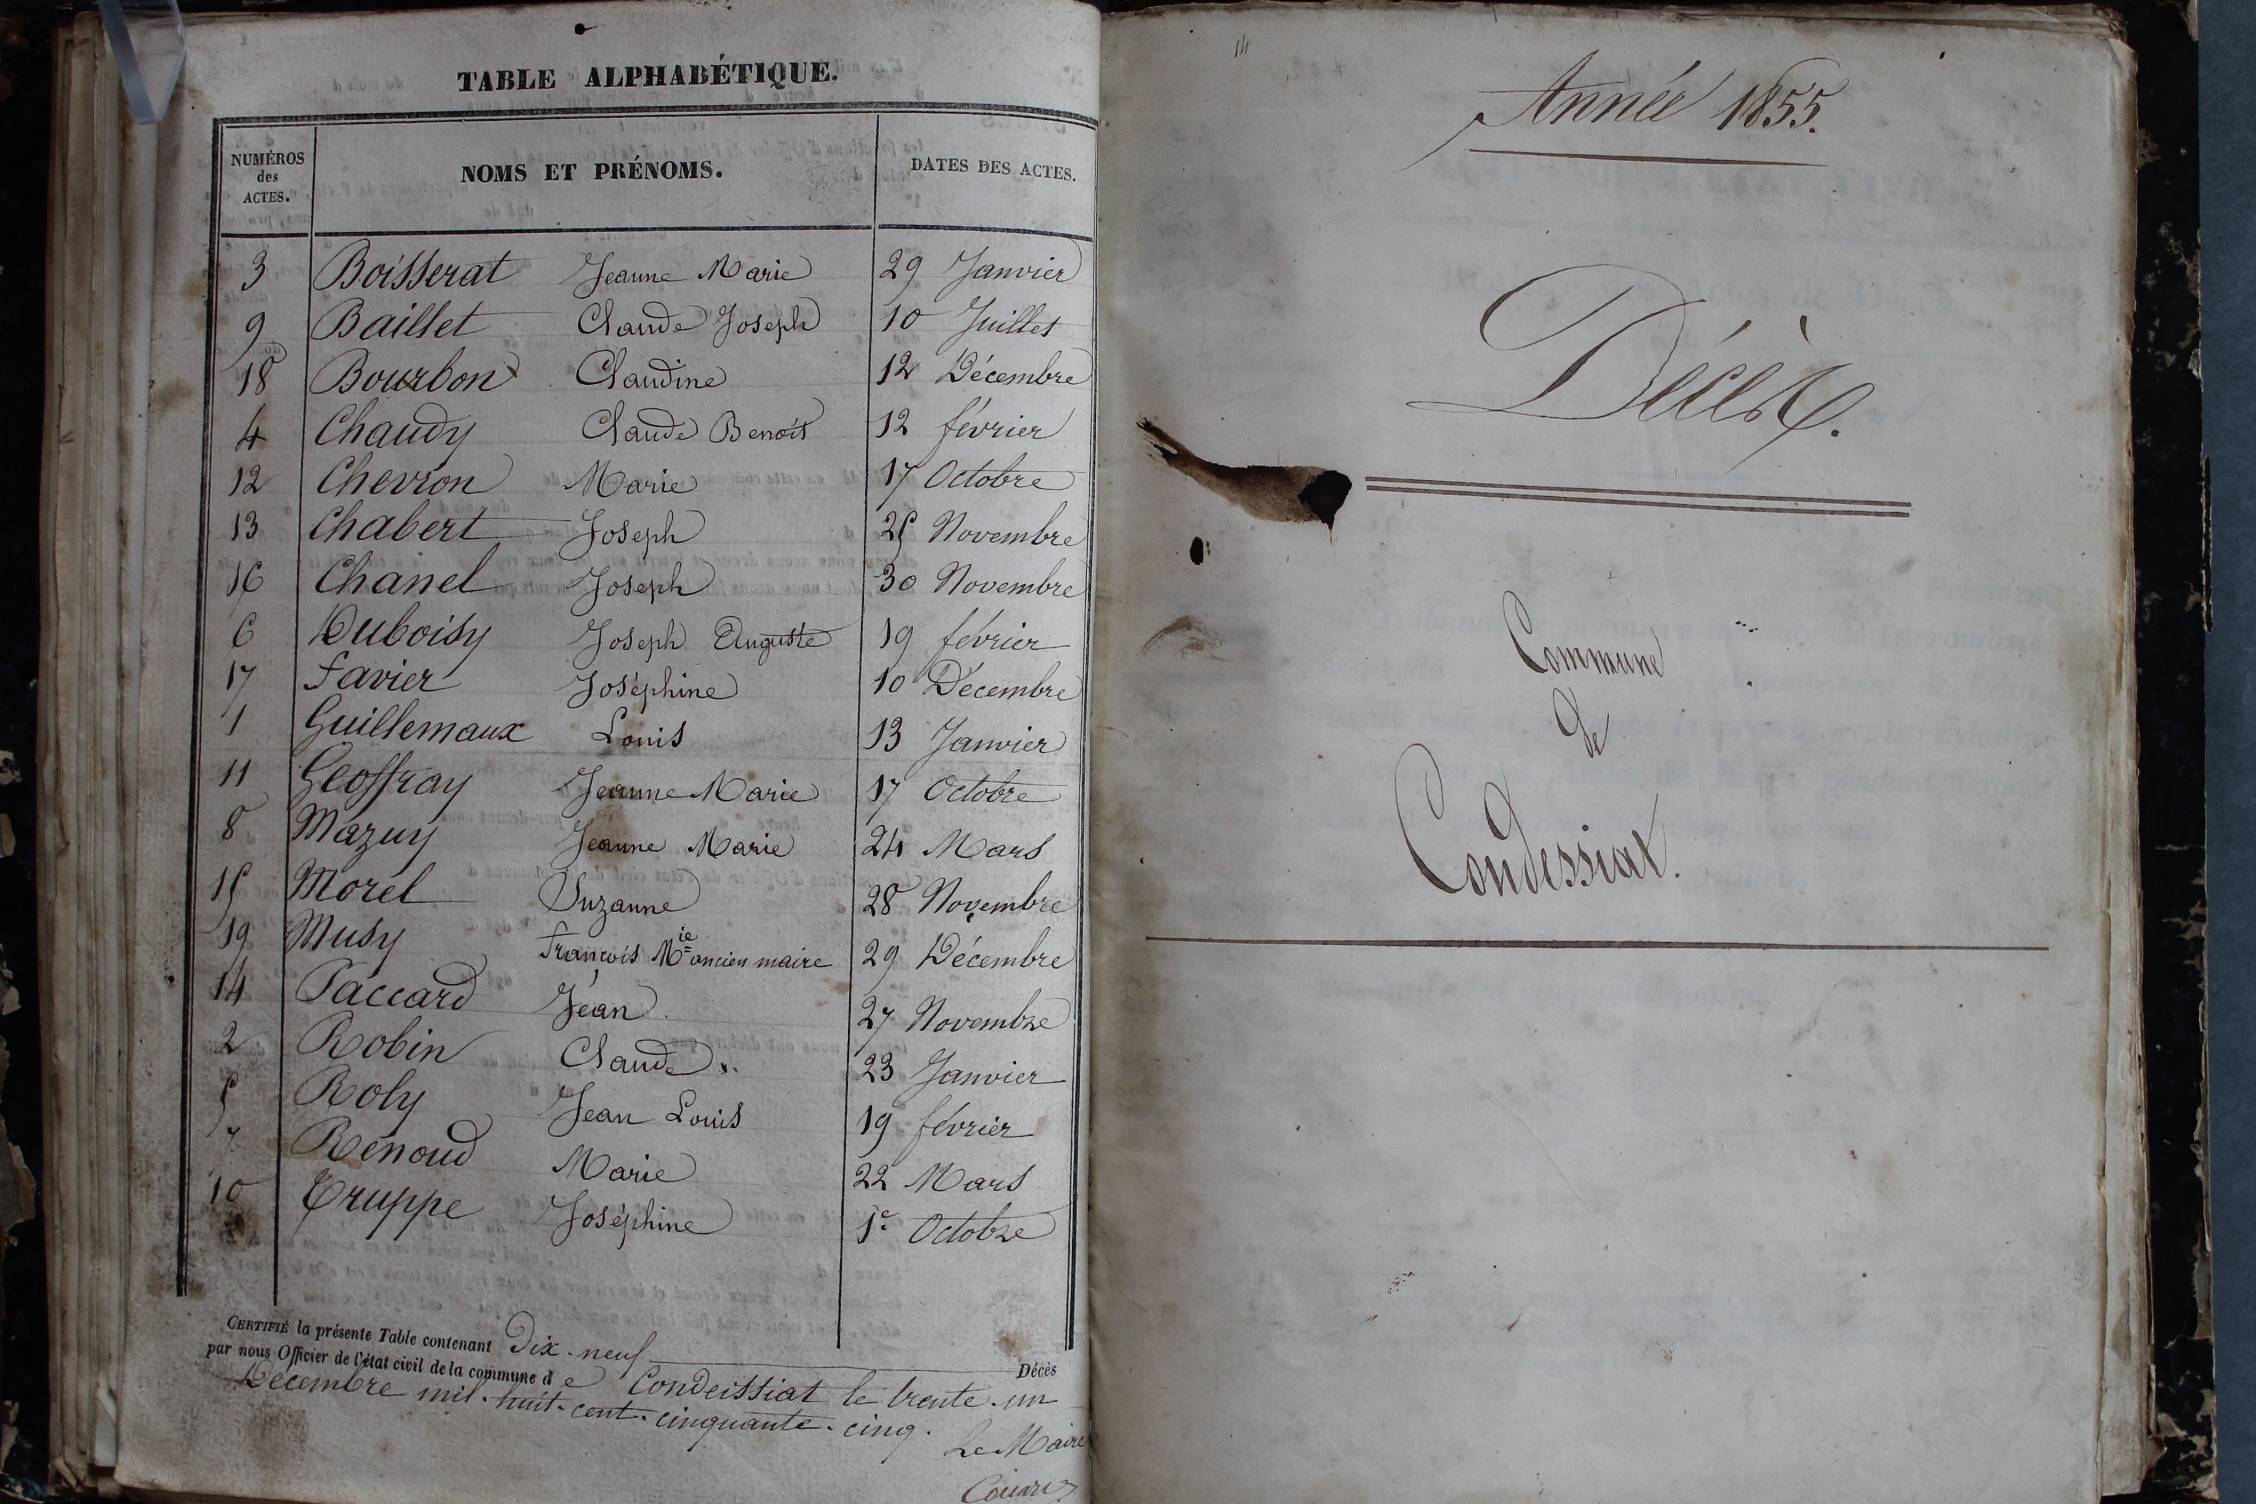 TABLE ALPHABÉTIQUE.
NUMÉROS des ACTES. NOMS ET PRÉNOMS. DATES DES ACTES.
3 Boisserat Jeanne Marie 29 Janvier
9 Baillet Claude Joseph 10 Juillet
18 Bourbon Claudine 12 Décembre
4 Chaudy Claude Benoit 12 février
12 Chevron Marie 17 Octobre
13 Chabert Joseph 25 Novembre
16 Chanel Joseph 30 Novembre
6 Duboisy Joseph Auguste 19 février
17 Favier Joséphine 10 Décembre
1 Guillemaux Louis 13 Janvier
11 Geoffray Jeanne Marie 17 Octobre
8 Mazuy Jeanne Marie 24 Mars
15 Morel Suzanne 28 Novembre
19 Musy françois Mie ancien maire 29 Décembre
14 Paccard Jean 27 Novembre
2 Robin Claude 23 Janvier
5 Roly Jean Louis 19 février
7 Renoud Marie 22 Mars
10 Truppe Joséphine 1e Octobre
CERTIFIÉ la présente Table contenant Dix-neuf Décès
par nous Officier de l'état civil de la commune de Condeissiat le trente-un
Décembre mil-huit-cent-cinquante-cinq.
Le Maire
Année 1855.
Décès.
Commune
de
Condessiat.